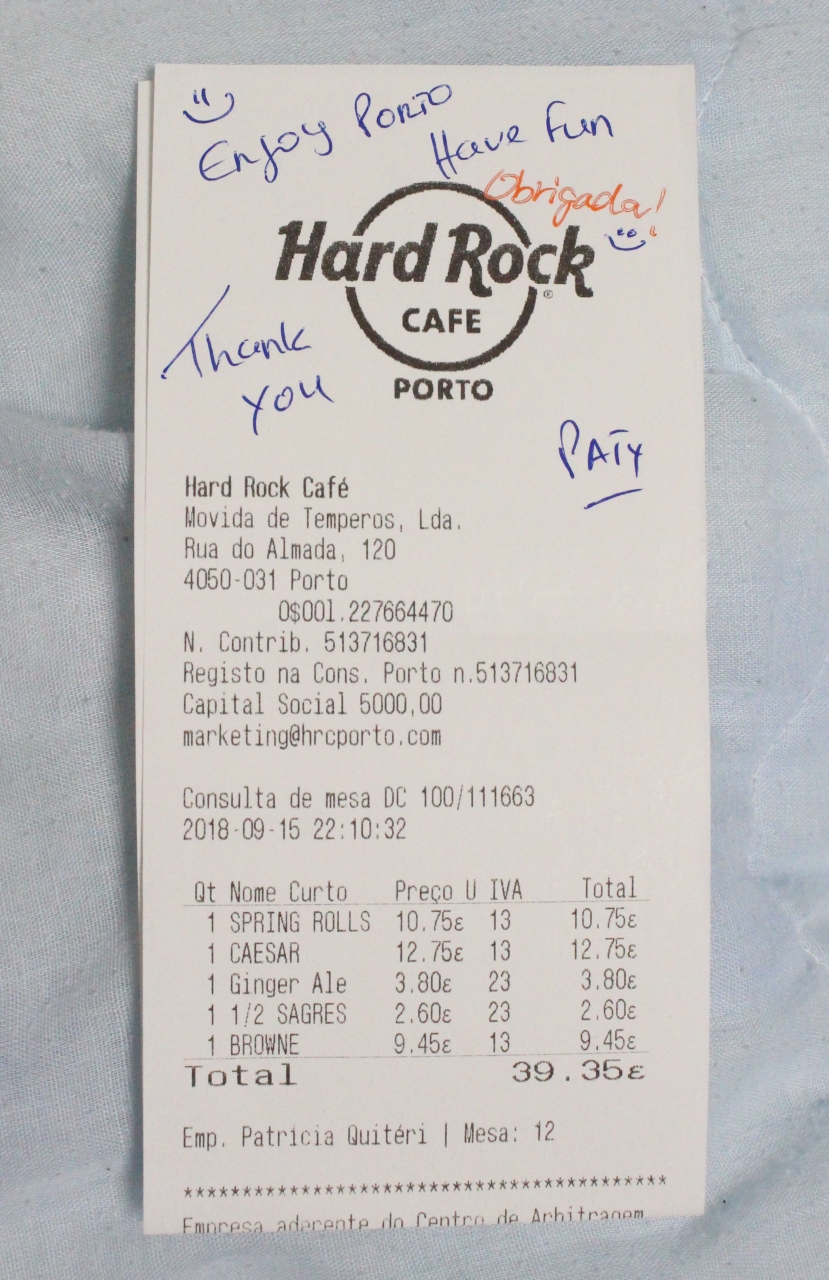 Enjoy Porto
Have Fun
Obrigada!
Hard Rock
®
CAFE
PORTO
Thank
you
PATY
Hard Rock Café
Movida de Temperos, Lda.
Rua do Almada, 120
4050-031 Porto
0$001.227664470
N. Contrib. 513716831
Registo na Cons. Porto n.513716831
Capital Social 5000,00
marketing@hrcporto.com
Consulta de mesa DC 100/111663
2018-09-15 22:10:32
Qt Nome Curto Preço U IVA Total
1 SPRING ROLLS 10.75ε 13 10.75ε
1 CAESAR 12.75ε 13 12.75ε
1 Ginger Ale 3.80ε 23 3.80ε
1 1/2 SAGRES 2.60ε 23 2.60ε
1 BROWNE 9.45ε 13 9.45ε
Total 39.35ε
Emp. Patrícia Quitéri | Mesa: 12
*****************************************
Empresa aderente do Centro de Arbitragem